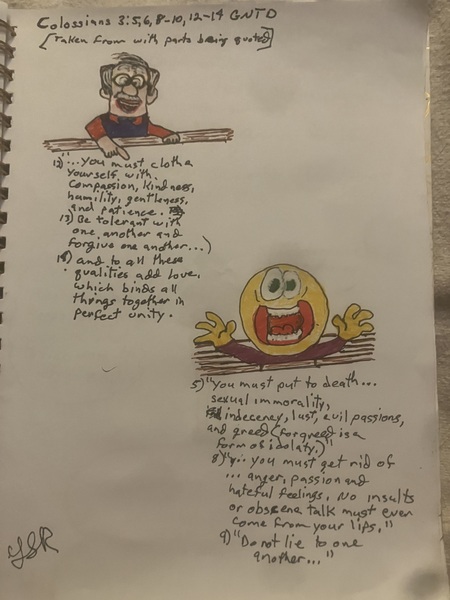 Colossians 3:5,6,8-10,12-14 GNTD
[Taken from with parts being quoted]
12) "...You must clothe
yourself with
compassion, kindness,
humility, gentleness,
and patience.
13) Be tolerant with
one another and
forgive one another...)
14) and to all these
qualities add love,
which binds all
things together in
perfect unity.
5) "You must put to death...
sexual immorality,
indecency, lust, evil passions,
and greed (for greed is a
form of idolaty.)"
8) "... you must get rid of
... anger, passion and
hateful feelings. No insults
or obscene talk must ever
come from your lips."
9) "Do not lie to one
another..."
JSR